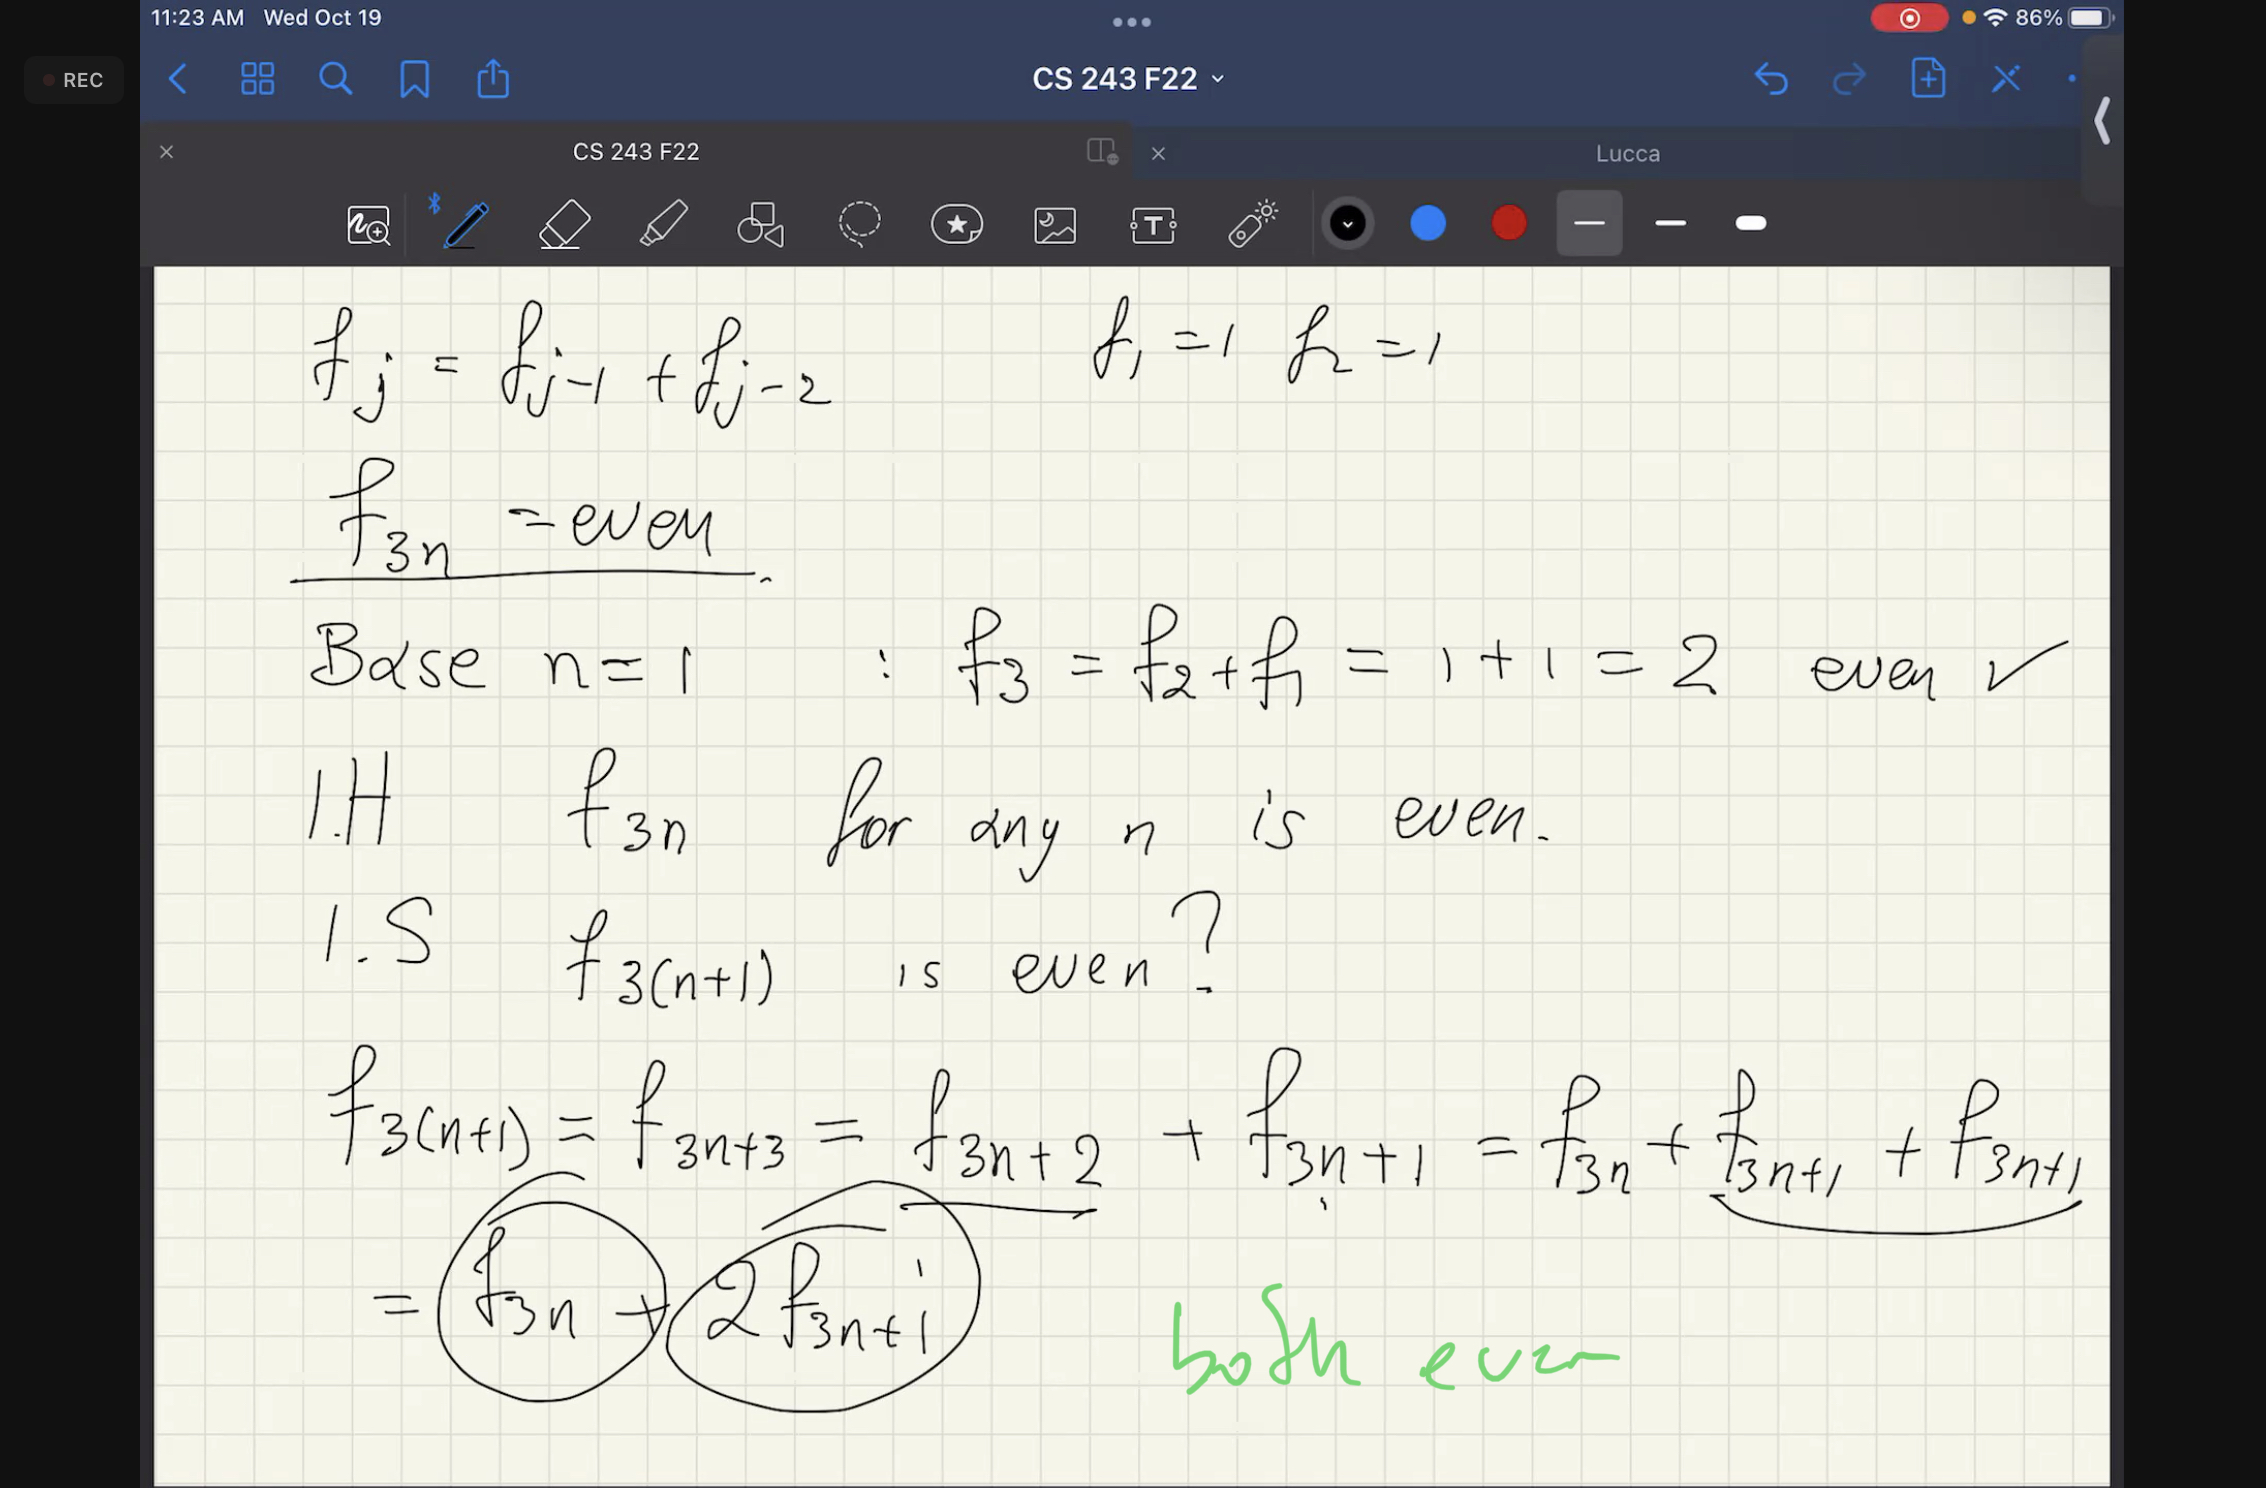 11:23 AM Wed Oct 19
86%
REC
CS 243 F22
CS 243 F22
Lucca
T
f_j = f_{j-1} + f_{j-2} f_1 = 1 f_2 = 1
f_{3n} = even
Base n = 1 : f_3 = f_2 + f_1 = 1 + 1 = 2 even ✓
I.H f_{3n} for any n is even.
I.S f_{3(n+1)} is even?
f_{3(n+1)} = f_{3n+3} = f_{3n+2} + f_{3n+1} = f_{3n} + f_{3n+1} + f_{3n+1}
= f_{3n} + 2f_{3n+1} both even